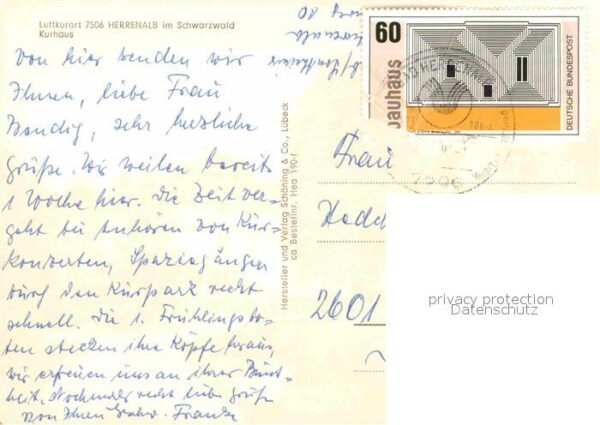 Luftkurort 7506 HERRENALB im Schwarzwald
Kurhaus
Von hier senden wir
Ihnen, liebe Frau
sehr herzliche
Grüße. Wir weilen bereits
1 Woche hier. Die Zeit ver-
geht bei Anhören von Kur-
konzerten, Spaziergängen
durch den Kurpark recht
schnell. Die 1. Frühlingsbo-
ten stecken ihre Köpfe heraus,
wir erfreuen uns an ihrer Bunt-
heit. Nochmals recht liebe Grüße
von Ihnen Franke
Hersteller und Verlag Schöning & Co., Lübeck
Bestellnr. Hea 190-1
60
bauhaus
DEUTSCHE BUNDESPOST
BAD HERRENALB
7506
Frau
2601
privacy protection
Datenschutz